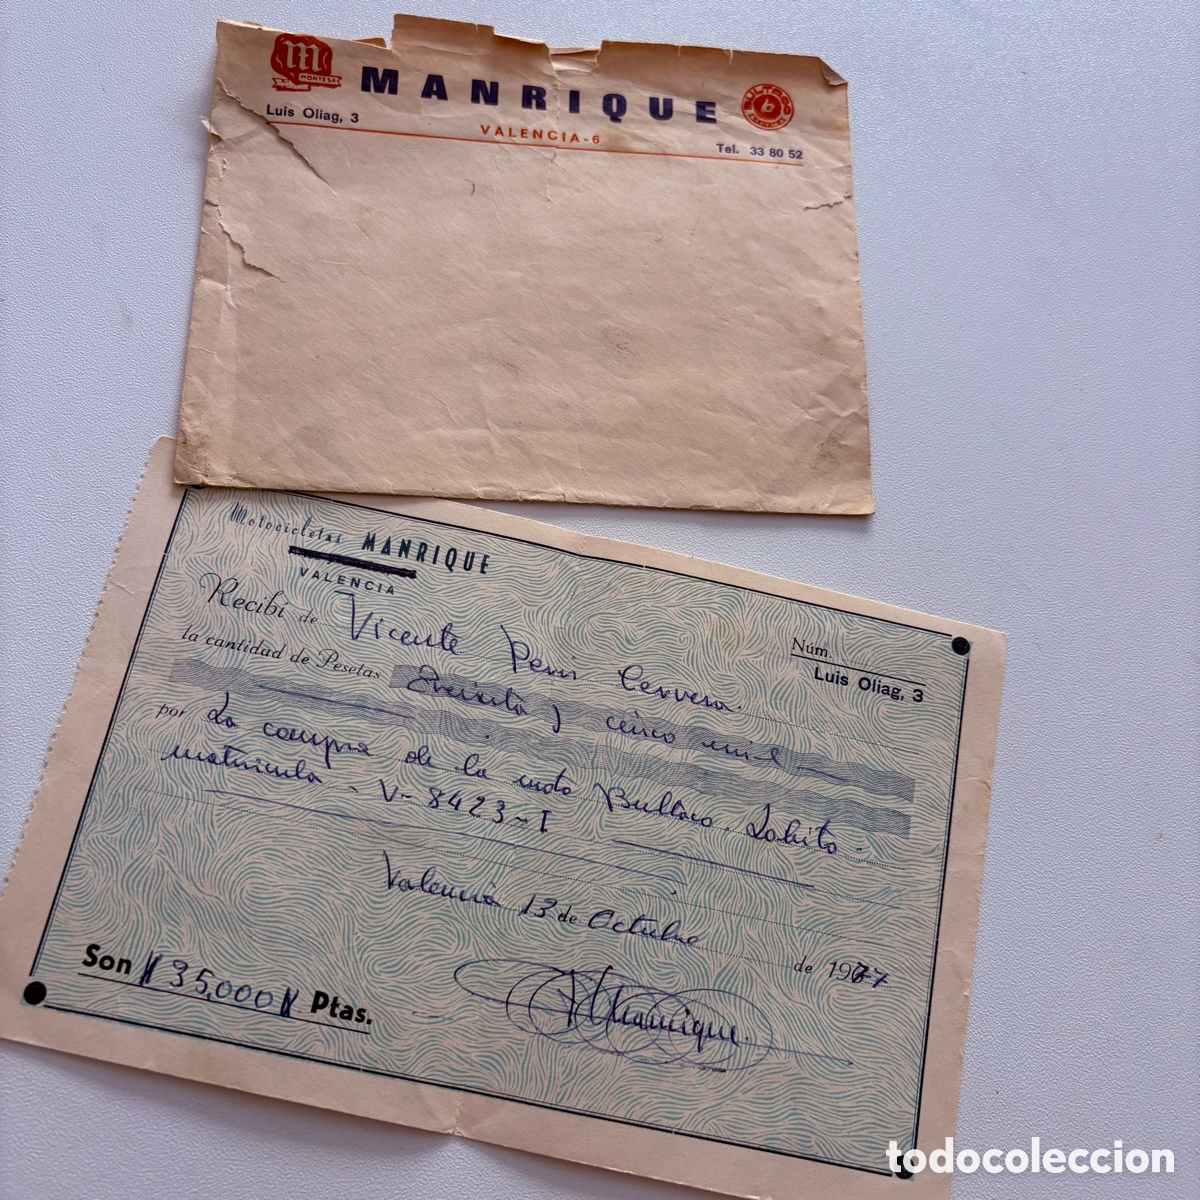 M
MONTESA
MANRIQUE
BULTACO
Luis Oliag, 3
VALENCIA-6
Tel. 33 80 52
Motocicletas MANRIQUE
VALENCIA
Núm.
Luis Oliag, 3
Recibí de Vicente Cervera.
la cantidad de Pesetas Treinta y cinco mil
por La compra de la moto Bultaco. Lobito.
matricula - V-8423-I
Valencia 13 de Octubre de 1977
Son # 35,000 # Ptas.
Manrique
todocoleccion